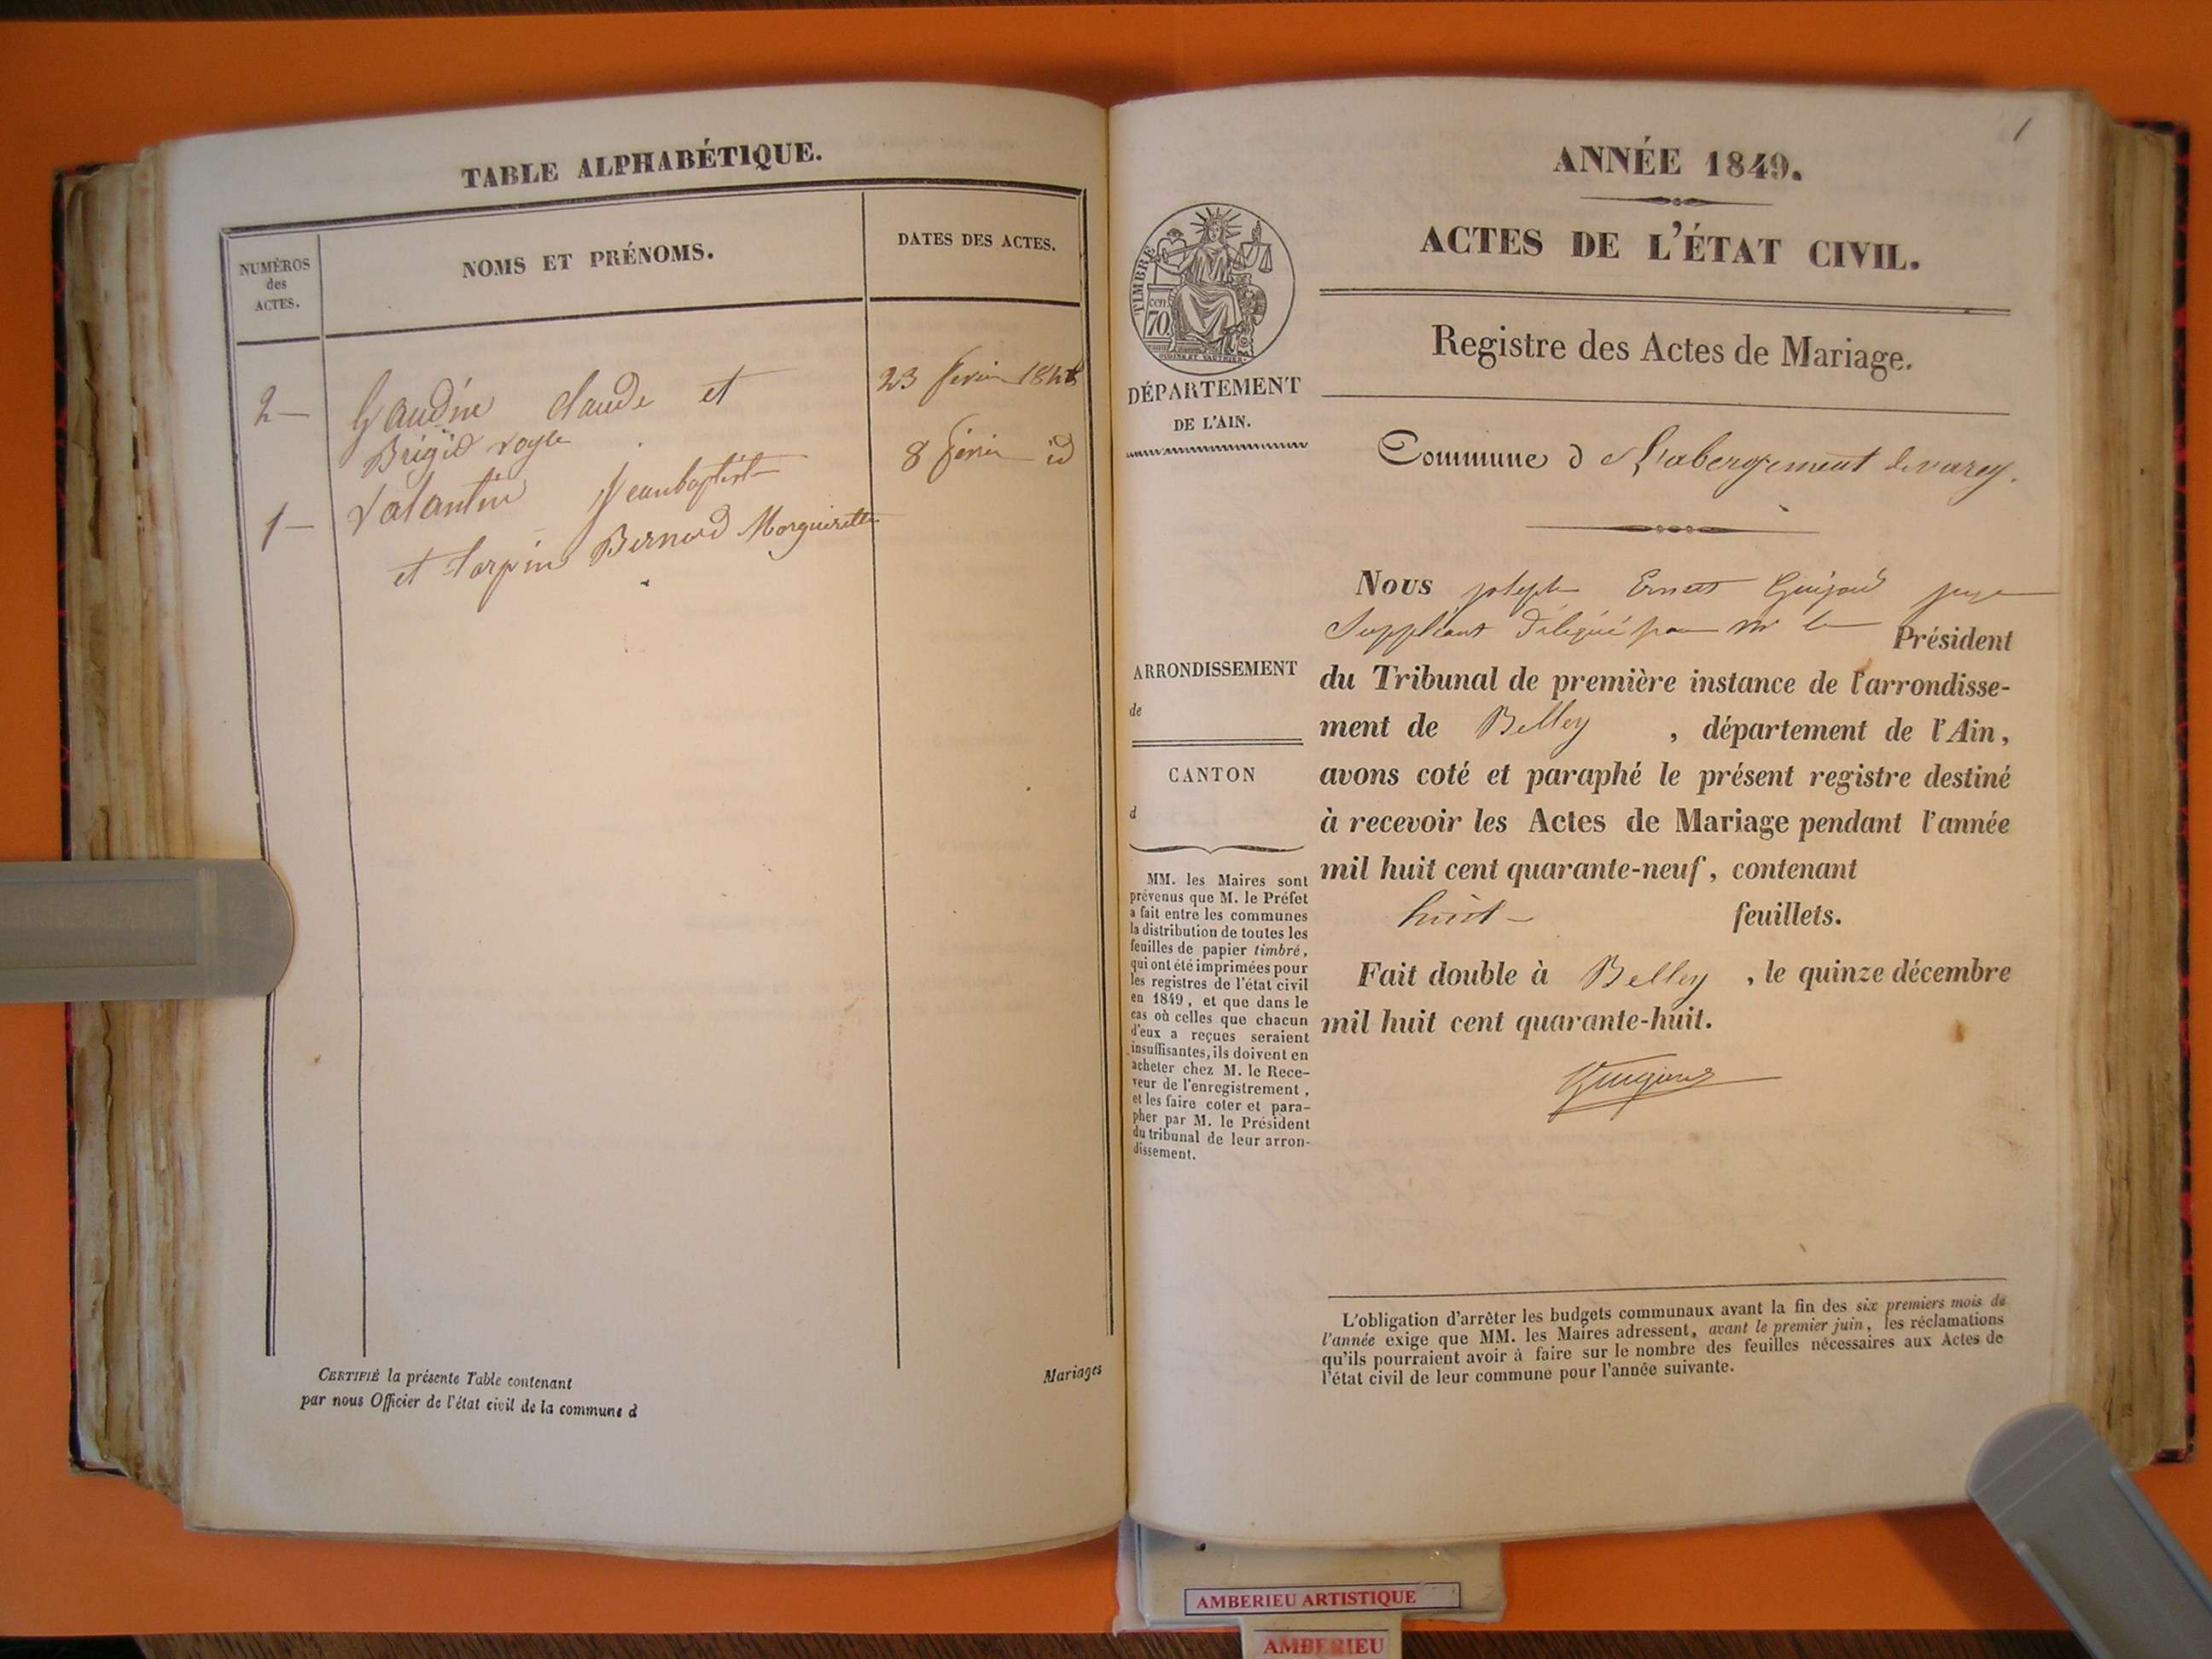 TABLE ALPHABÉTIQUE.
NUMÉROS
des
ACTES.
NOMS ET PRÉNOMS.
DATES DES ACTES.
2 — Gaudin Claude et 23 fevrier 1848
Brigid
1 — Valantin Jeanbaptiste 8 février id
et tarpin Bernard Marguerite
CERTIFIÉ la présente Table contenant
par nous Officier de l'état civil de la commune d
Mariages
1
ANNÉE 1849.
ACTES DE L'ÉTAT CIVIL.
Registre des Actes de Mariage.
TIMBRE
cen.
70
DÉPARTEMENT
DE L'AIN.
Commune d L'abergement de varey.
Nous joseph Ernest juge
Suppléant délégué par Mr le Président
ARRONDISSEMENT
de
du Tribunal de première instance de l'arrondisse-
ment de Belley , département de l'Ain,
CANTON
d
avons coté et paraphé le présent registre destiné
à recevoir les Actes de Mariage pendant l'année
mil huit cent quarante-neuf, contenant
huit — feuillets.
Fait double à Belley , le quinze décembre
mil huit cent quarante-huit.
MM. les Maires sont
prévenus que M. le Préfet
a fait entre les communes
la distribution de toutes les
feuilles de papier timbré,
qui ont été imprimées pour
les registres de l'état civil
en 1849, et que dans le
cas où celles que chacun
d'eux a reçues seraient
insuffisantes, ils doivent en
acheter chez M. le Rece-
veur de l'enregistrement,
et les faire coter et para-
pher par M. le Président
du tribunal de leur arron-
dissement.
L'obligation d'arrêter les budgets communaux avant la fin des six premiers mois de
l'année exige que MM. les Maires adressent, avant le premier juin, les réclamations
qu'ils pourraient avoir à faire sur le nombre des feuilles nécessaires aux Actes de
l'état civil de leur commune pour l'année suivante.
AMBERIEU ARTISTIQUE
AMBERIEU